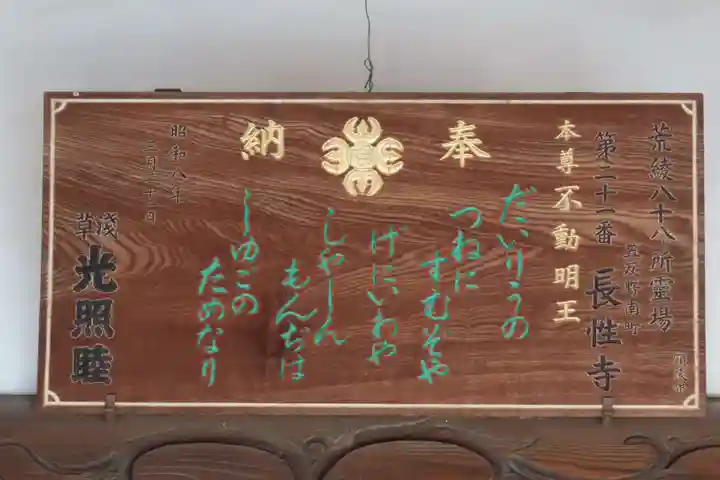 荒綾八十八所霊場
第二十一番
長性寺
本尊不動明王
奉納
だいりうの
つねに
すむぞや
げにいわや
しやしん
もんぢは
しゆごの
ためなり
昭和八年
浅草
光照睦